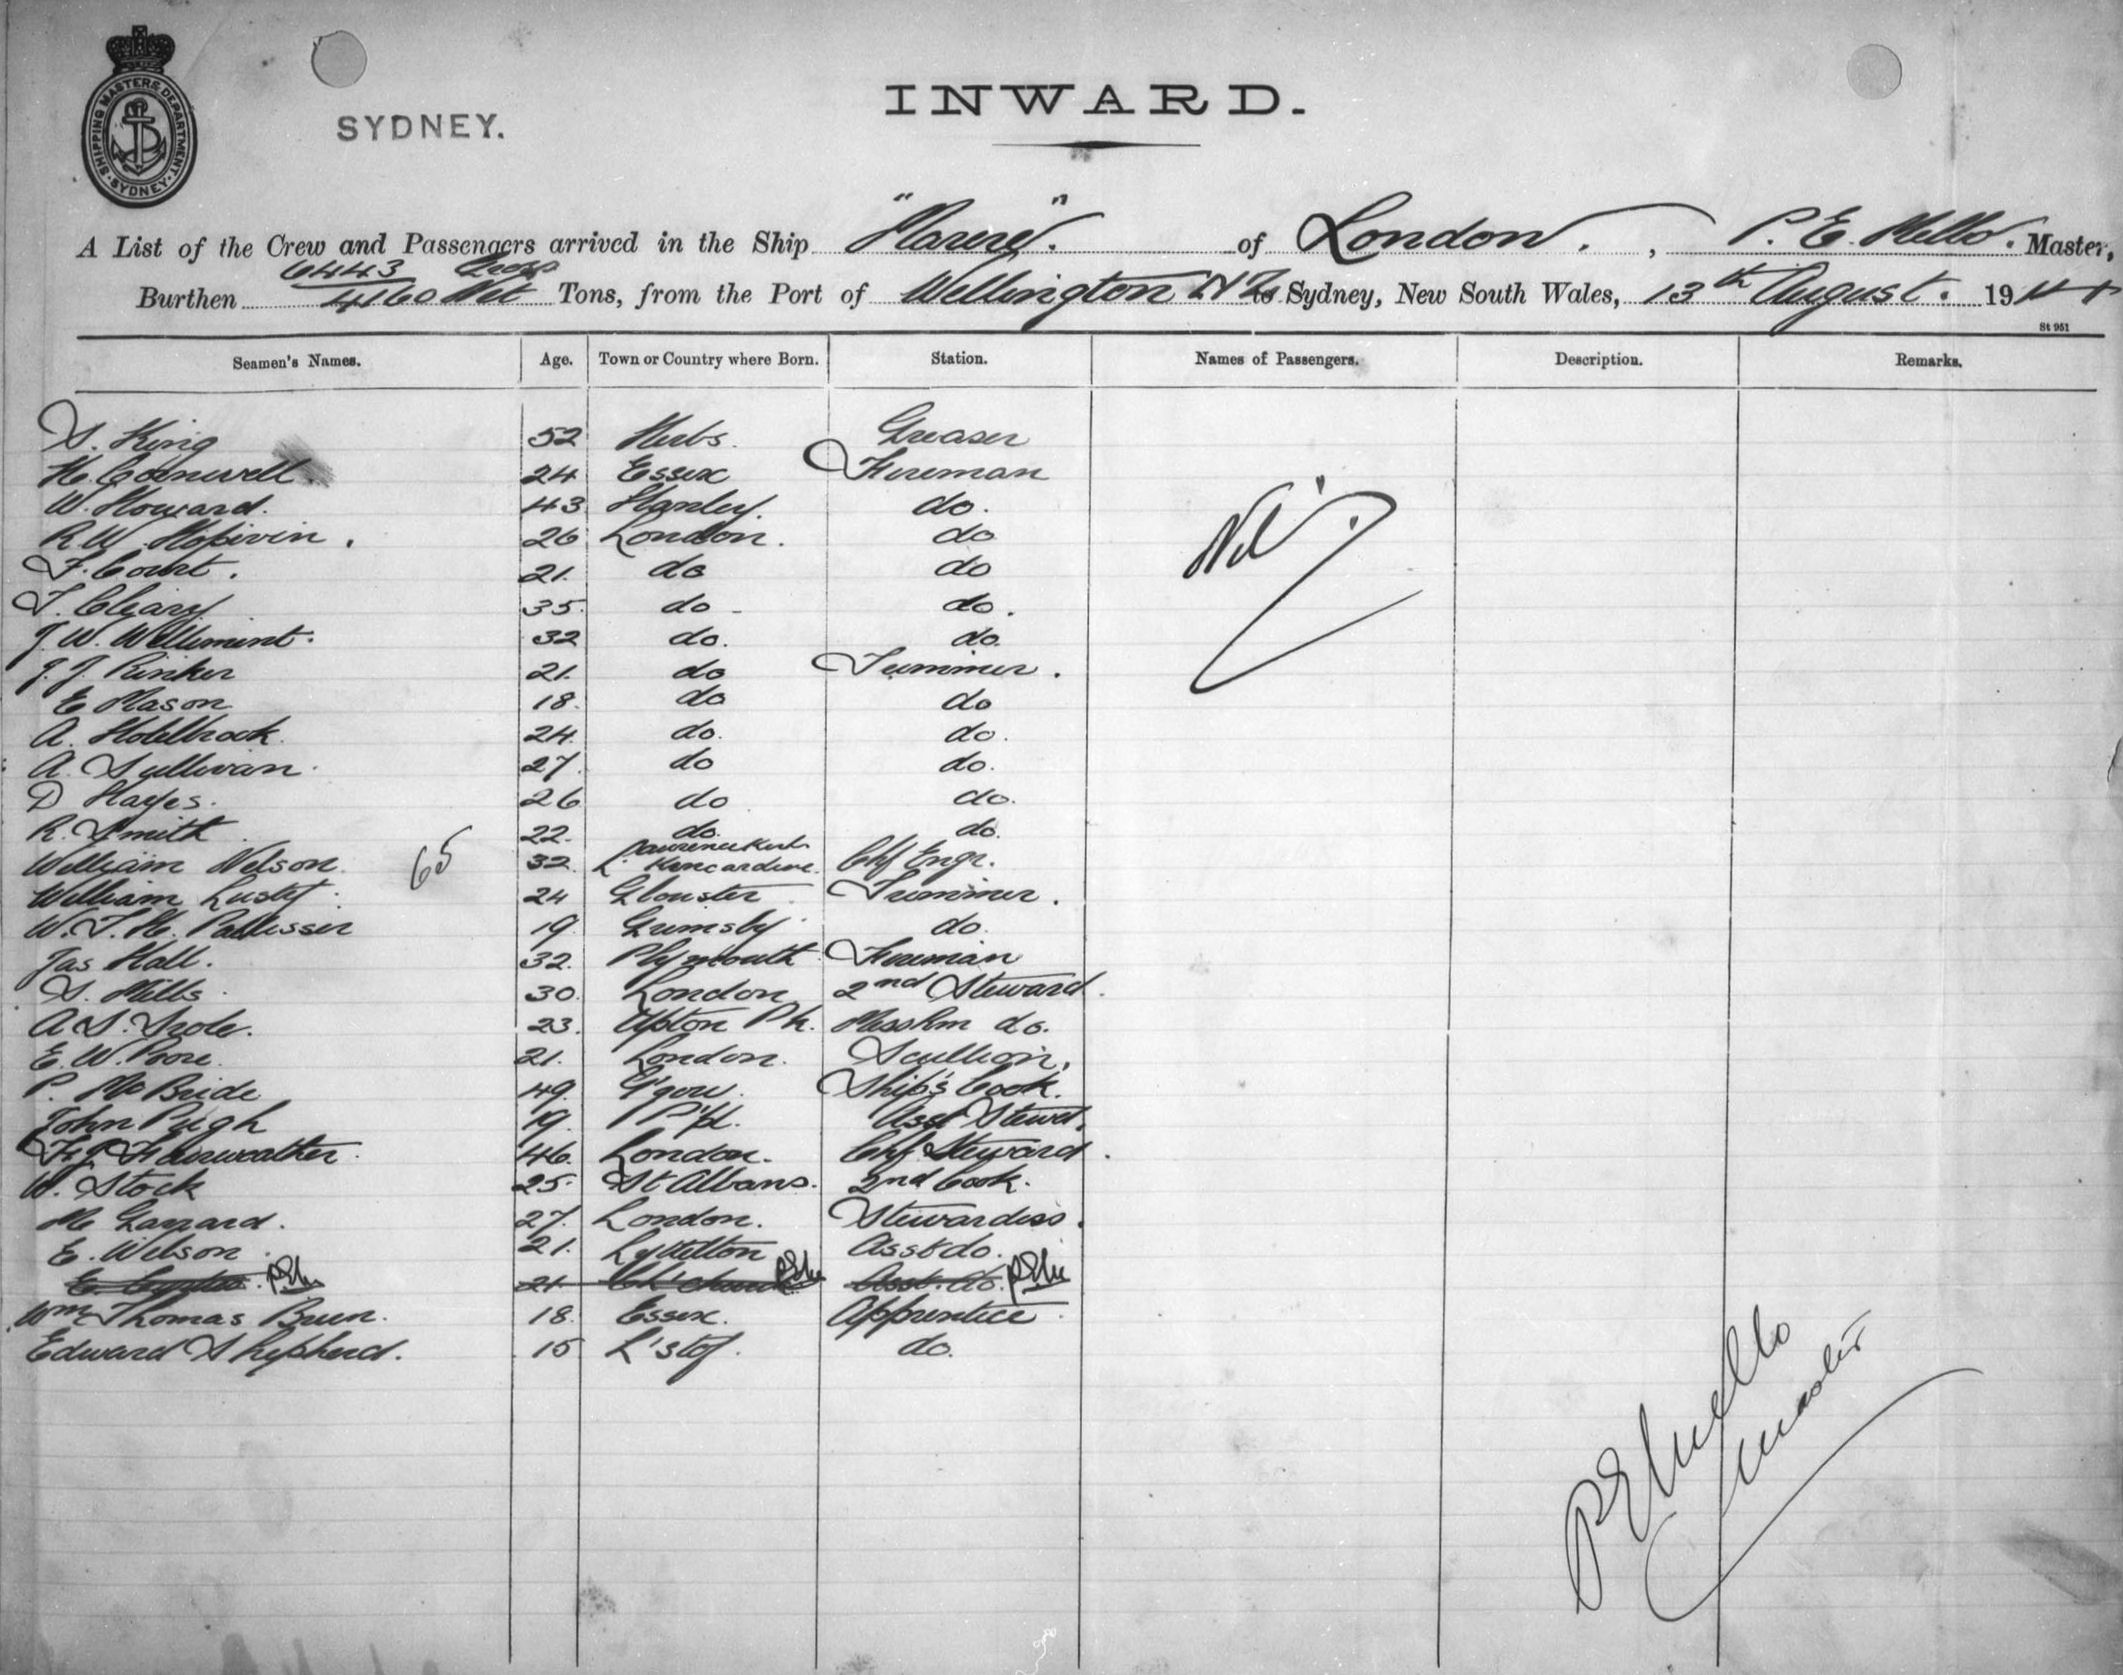 SHIPPING MASTERS DEPARTMENT. SYDNEY.
SYDNEY.
INWARD.
A List of the Crew and Passengers arrived in the Ship of London. , P. E. Mello. Master,
6443 Gross
Burthen 4160 Net Tons, from the Port of Wellington NZ to Sydney, New South Wales, 13th August. 19
St 951
Seamen's Names. Age. Town or Country where Born. Station. Names of Passengers. Description. Remarks.
S. King 52 Herts. Greaser
H. Cornwell 24 Essex Fireman
W. Howard. 43 Hanley. do.
R W 26 London. do
F. Court. 21. do do
T. Cleary 35. do - do.
J. W. Williment. 32 do. do.
J. J. Rinker 21. do Trimmer.
E Mason 18. do do
A. Holdbrook 24. do. do.
A. Sullivan. 27. do do.
D Hayes. 26 do do.
R. Smith 22. do. do.
William Nelson. 65 32. Laurencekirk Kincardine. Chf Engr.
William Lusty. 24 Glouster Trimmer.
W. T. H. Pallisser 19. Grimsby. do.
Jas Hall. 32. Plymouth Fireman
S. Mills. 30. London 2nd Steward.
A. S. 23. Upton Pk. Messrm do.
E. W. Poore. 21. London. Scullion.
P. McBride 49. G'gow. Ship's Cook.
John Pugh 19. Asst Steward.
F. J. Fairweather. 46. London. Chf Steward.
W. Stock 25. St Albans. 2nd Cook.
M 27. London. Stewardess.
E. Wilson. 21. Lyttelton Asst do.
21 Ch'church Asst. do.
Wm Thomas 18. Essex. Apprentice
Edward Shepherd. 15 L'stof. do.
Nil.
P E Mello
Master